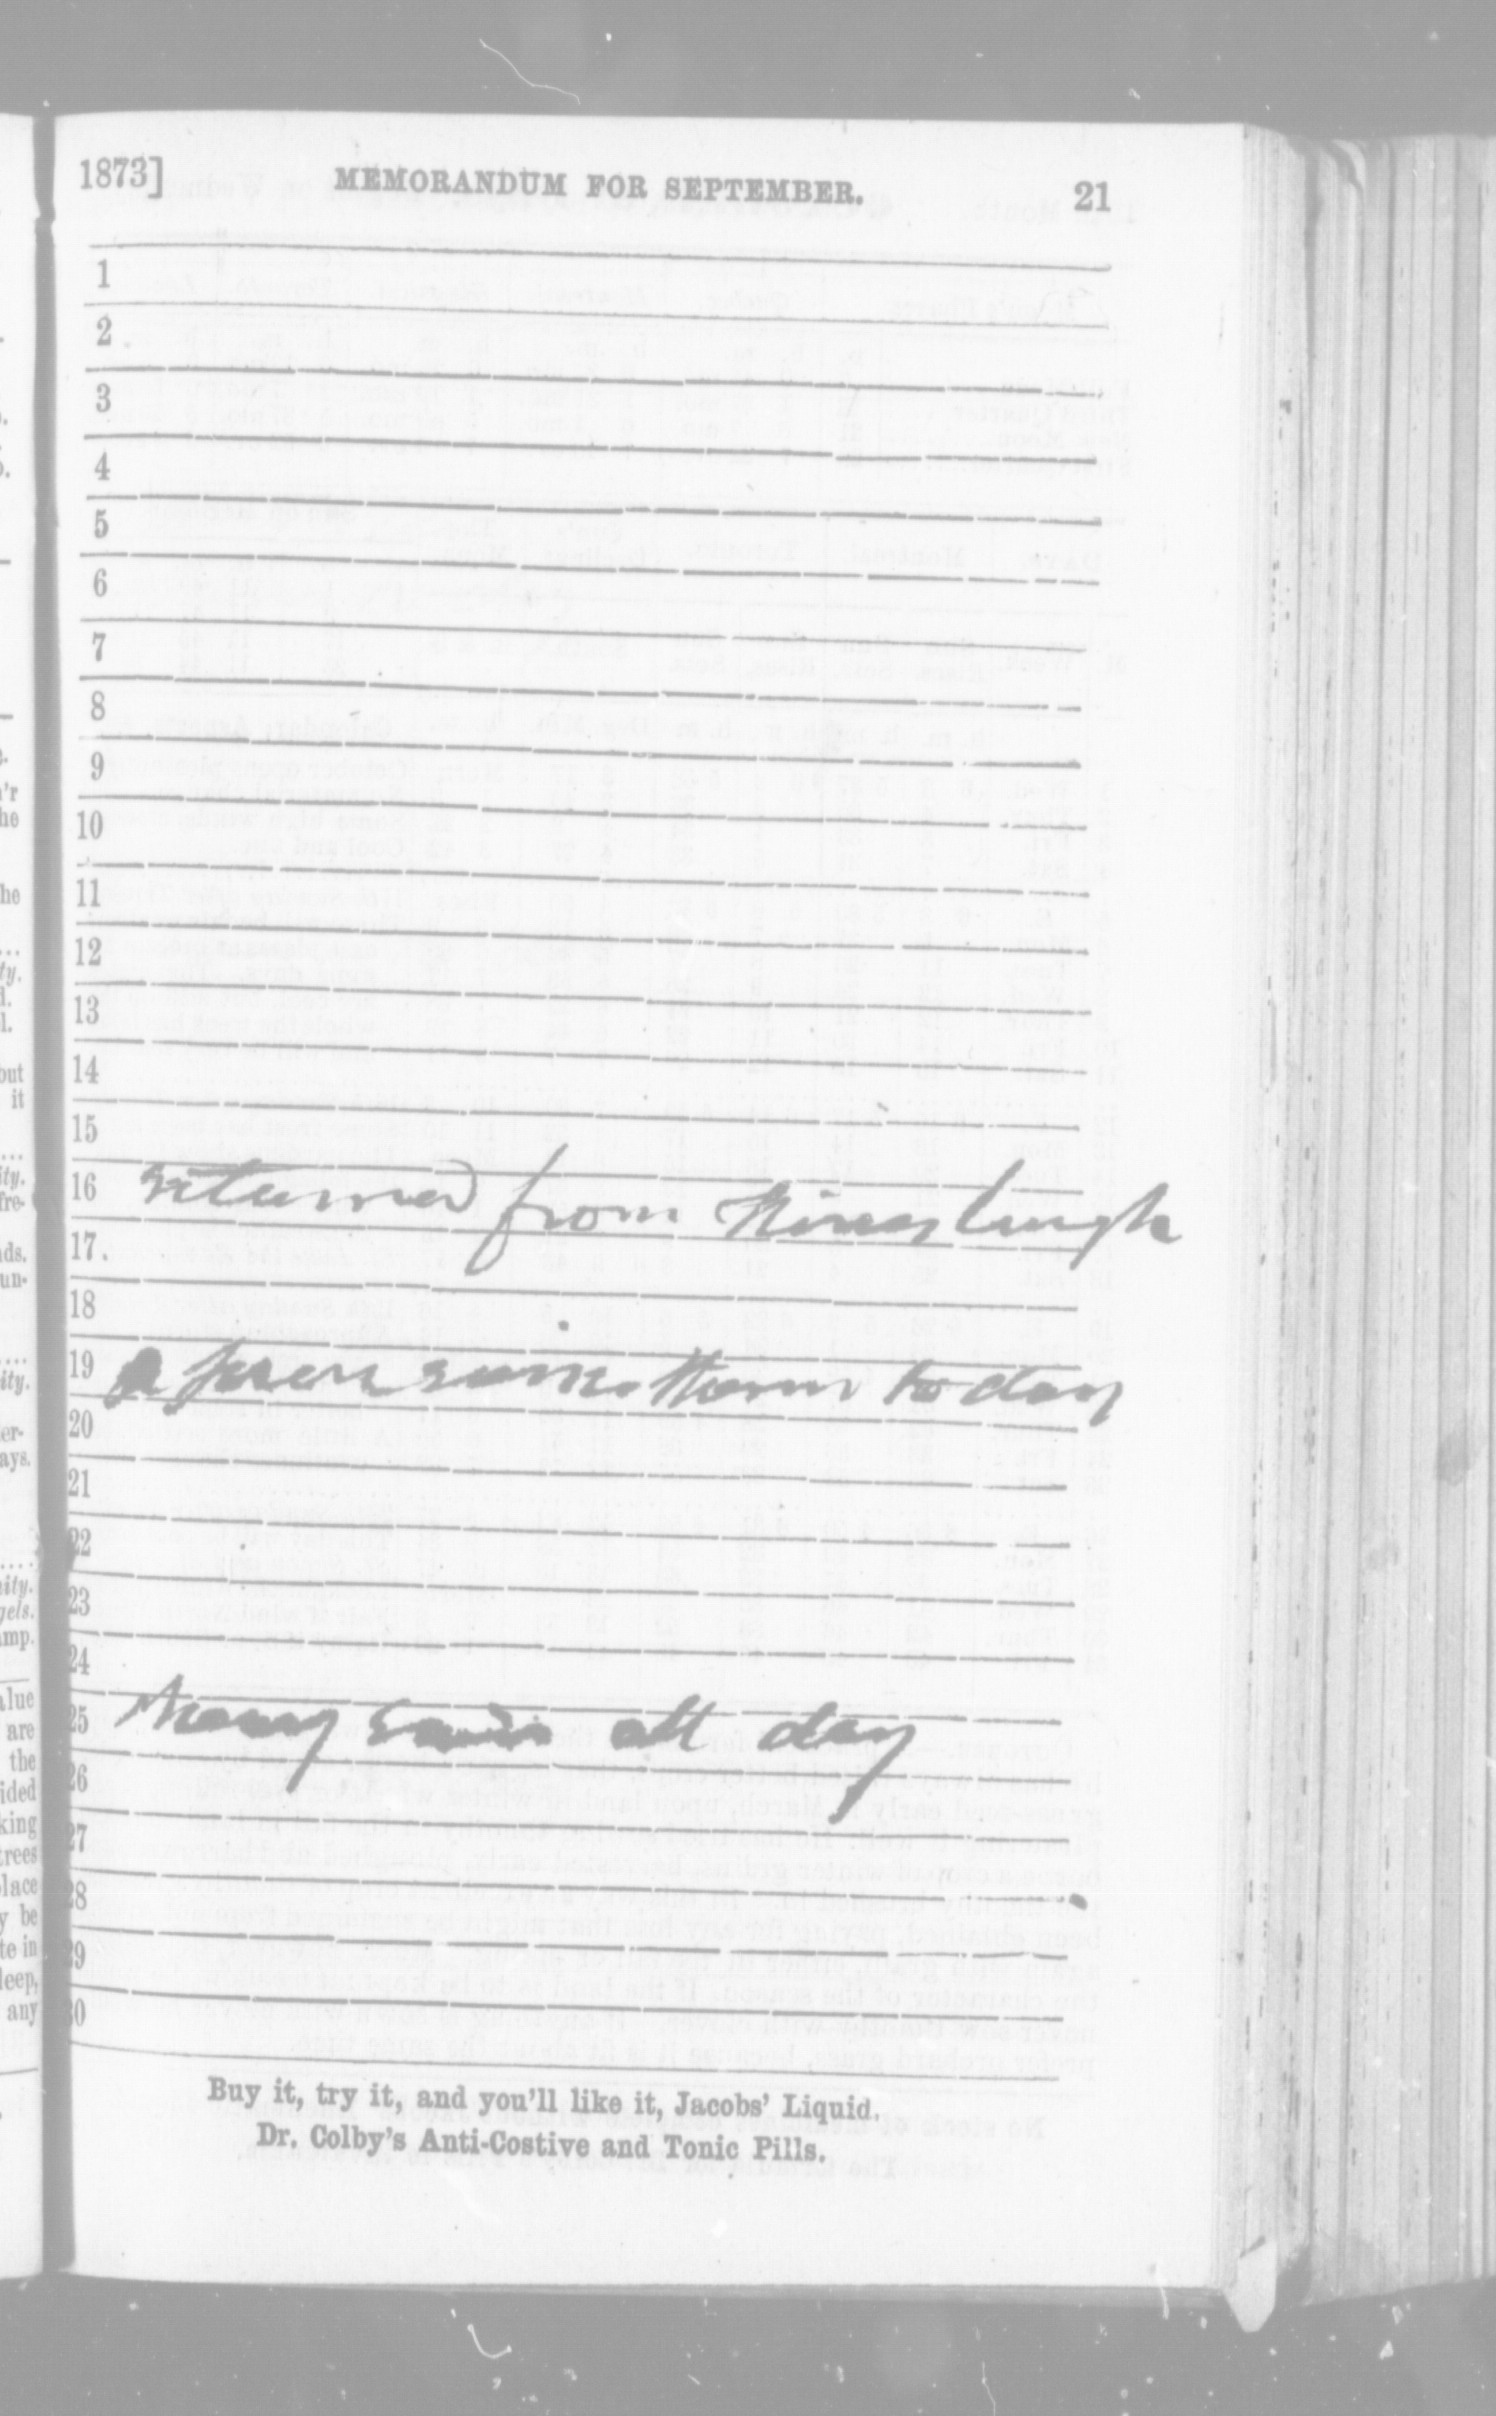 1873] MEMORANDUM FOR SEPTEMBER. 21
1
2
3
4
5
6
7
8
9
10
11
12
13
14
15
16 returned from
17.
18
19 a rain storm to day
20
21
22
23
24
25 heavy rain all day
26
27
28
29
30
Buy it, try it, and you'll like it, Jacobs' Liquid.
Dr. Colby's Anti-Costive and Tonic Pills.